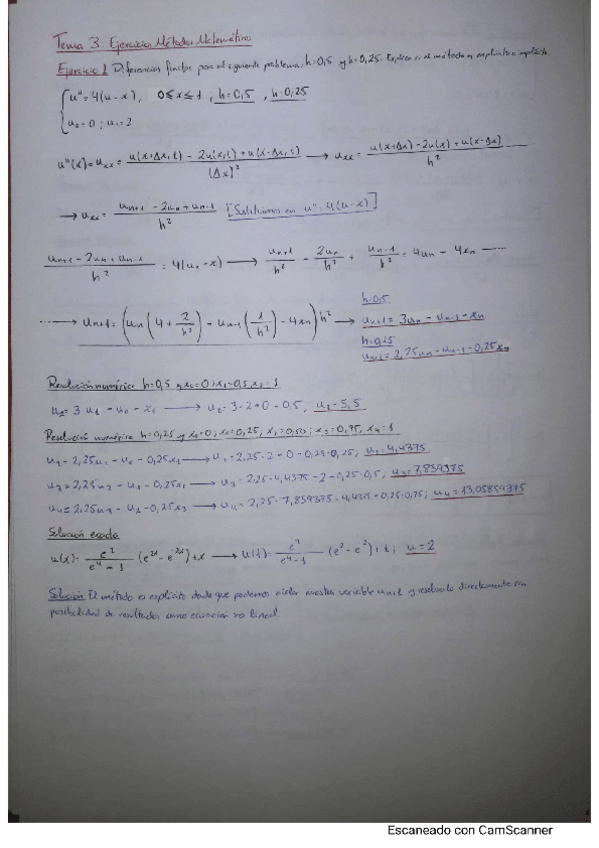 Tema 3. Ejercicios Métodos Matemáticos
Ejercicio 1. Diferencias finitas para el siguiente problema. h=0,5 y h=0,25. Explica si el método es explícito o implícito.
{ u''=4(u-x), 0≤x≤1, h=0,5, h=0,25
u₀=0; u₁=2
u''(x)=uₓₓ = (u(x+Δx,t) - 2u(x,t) + u(x-Δx,t))/(Δx)² → uₓₓ = (u(x+Δx)-2u(x)+u(x-Δx))/h²
→ uₓₓ = (uₙ₊₁ - 2uₙ + uₙ₋₁)/h² [Sustituimos en u''=4(u-x)]
(uₙ₊₁ - 2uₙ + uₙ₋₁)/h² = 4(uₙ-x) → uₙ₊₁/h² - 2uₙ/h² + uₙ₋₁/h² = 4uₙ - 4xₙ ......
......→ uₙ₊₁ = (uₙ(4+2/h²) - uₙ₋₁(1/h²) - 4xₙ)h² →
h=0,5
uₙ₊₁ = 3uₙ - uₙ₋₁ - xₙ
h=0,25
uₙ₊₁ = 2,25uₙ - uₙ₋₁ - 0,25xₙ
Resolución numérica h=0,5 y x₀=0; x₁=0,5; x₂=1
u₂= 3u₁ - u₀ - x₁ → u₂=3·2-0-0,5, u₂=5,5
Resolución numérica h=0,25 y x₀=0; x₁=0,25; x₂=0,50; x₃=0,75, x₄=1
u₂=2,25u₁-u₀-0,25x₁ → u₂=2,25·2-0-0,25·0,25; u₂=4,4375
u₃=2,25u₂-u₁-0,25x₂ → u₃=2,25·4,4375-2-0,25·0,5; u₃=7,859375
u₄=2,25u₃-u₂-0,25x₃ → u₄=2,25·7,859375-4,4375-0,25·0,75; u₄=13,05859375
Solución exacta
u(x)= e²/(e⁴-1) (e²ˣ-e⁻²ˣ)+x → u(1)= e²/(e⁴-1) (e²-e⁻²)+1; u=2
Solución: El método es explícito dado que podemos aislar nuestra variable uₙ₊₁ y resolverla directamente sin
posibilidad de resultados como ecuación no lineal.
Escaneado con CamScanner